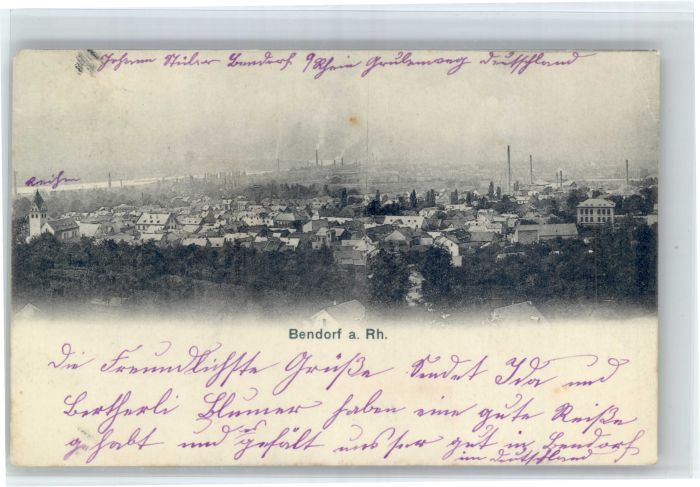 Johann Stüler Bendorf a/Rhein Grulenweg deutschland
Bendorf a. Rh.
die Freundlichste Grüße Sendet Ida und
Bertherli Blumer haben eine gute Reiße
gehabt und es gefält uns ser gut in Bendorf
im deutschland